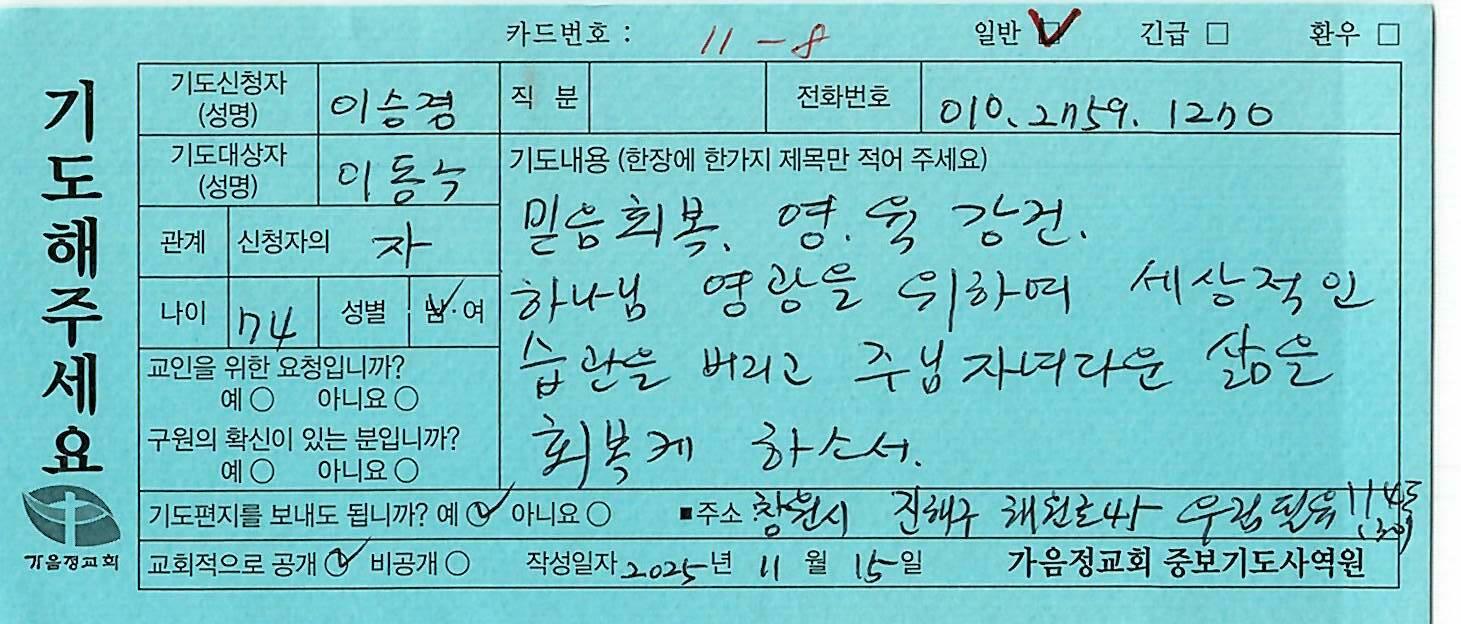 카드번호 : 11 - 8 일반 ☑ 긴급 □ 환우 □
기도해주세요
기도신청자 (성명) 이승경 직 분 전화번호 010. 2759. 1270
기도대상자 (성명) 이동수
관계 신청자의 자
나이 74 성별 남 · 여
교인을 위한 요청입니까?
예 ○ 아니요 ○
구원의 확신이 있는 분입니까?
예 ○ 아니요 ○
기도내용 (한장에 한가지 제목만 적어 주세요)
믿음회복. 영. 육 강건.
하나님 영광을 위하며 세상적인
습관을 버리고 주님 자녀다운 삶을
회복케 하소서.
기도편지를 보내도 됩니까? 예 ☑ 아니요 ○ ■주소 : 창원시 진해구 해원로45 우림필유
교회적으로 공개 ☑ 비공개 ○ 작성일자 2025년 11 월 15일 가음정교회 중보기도사역원
가음정교회